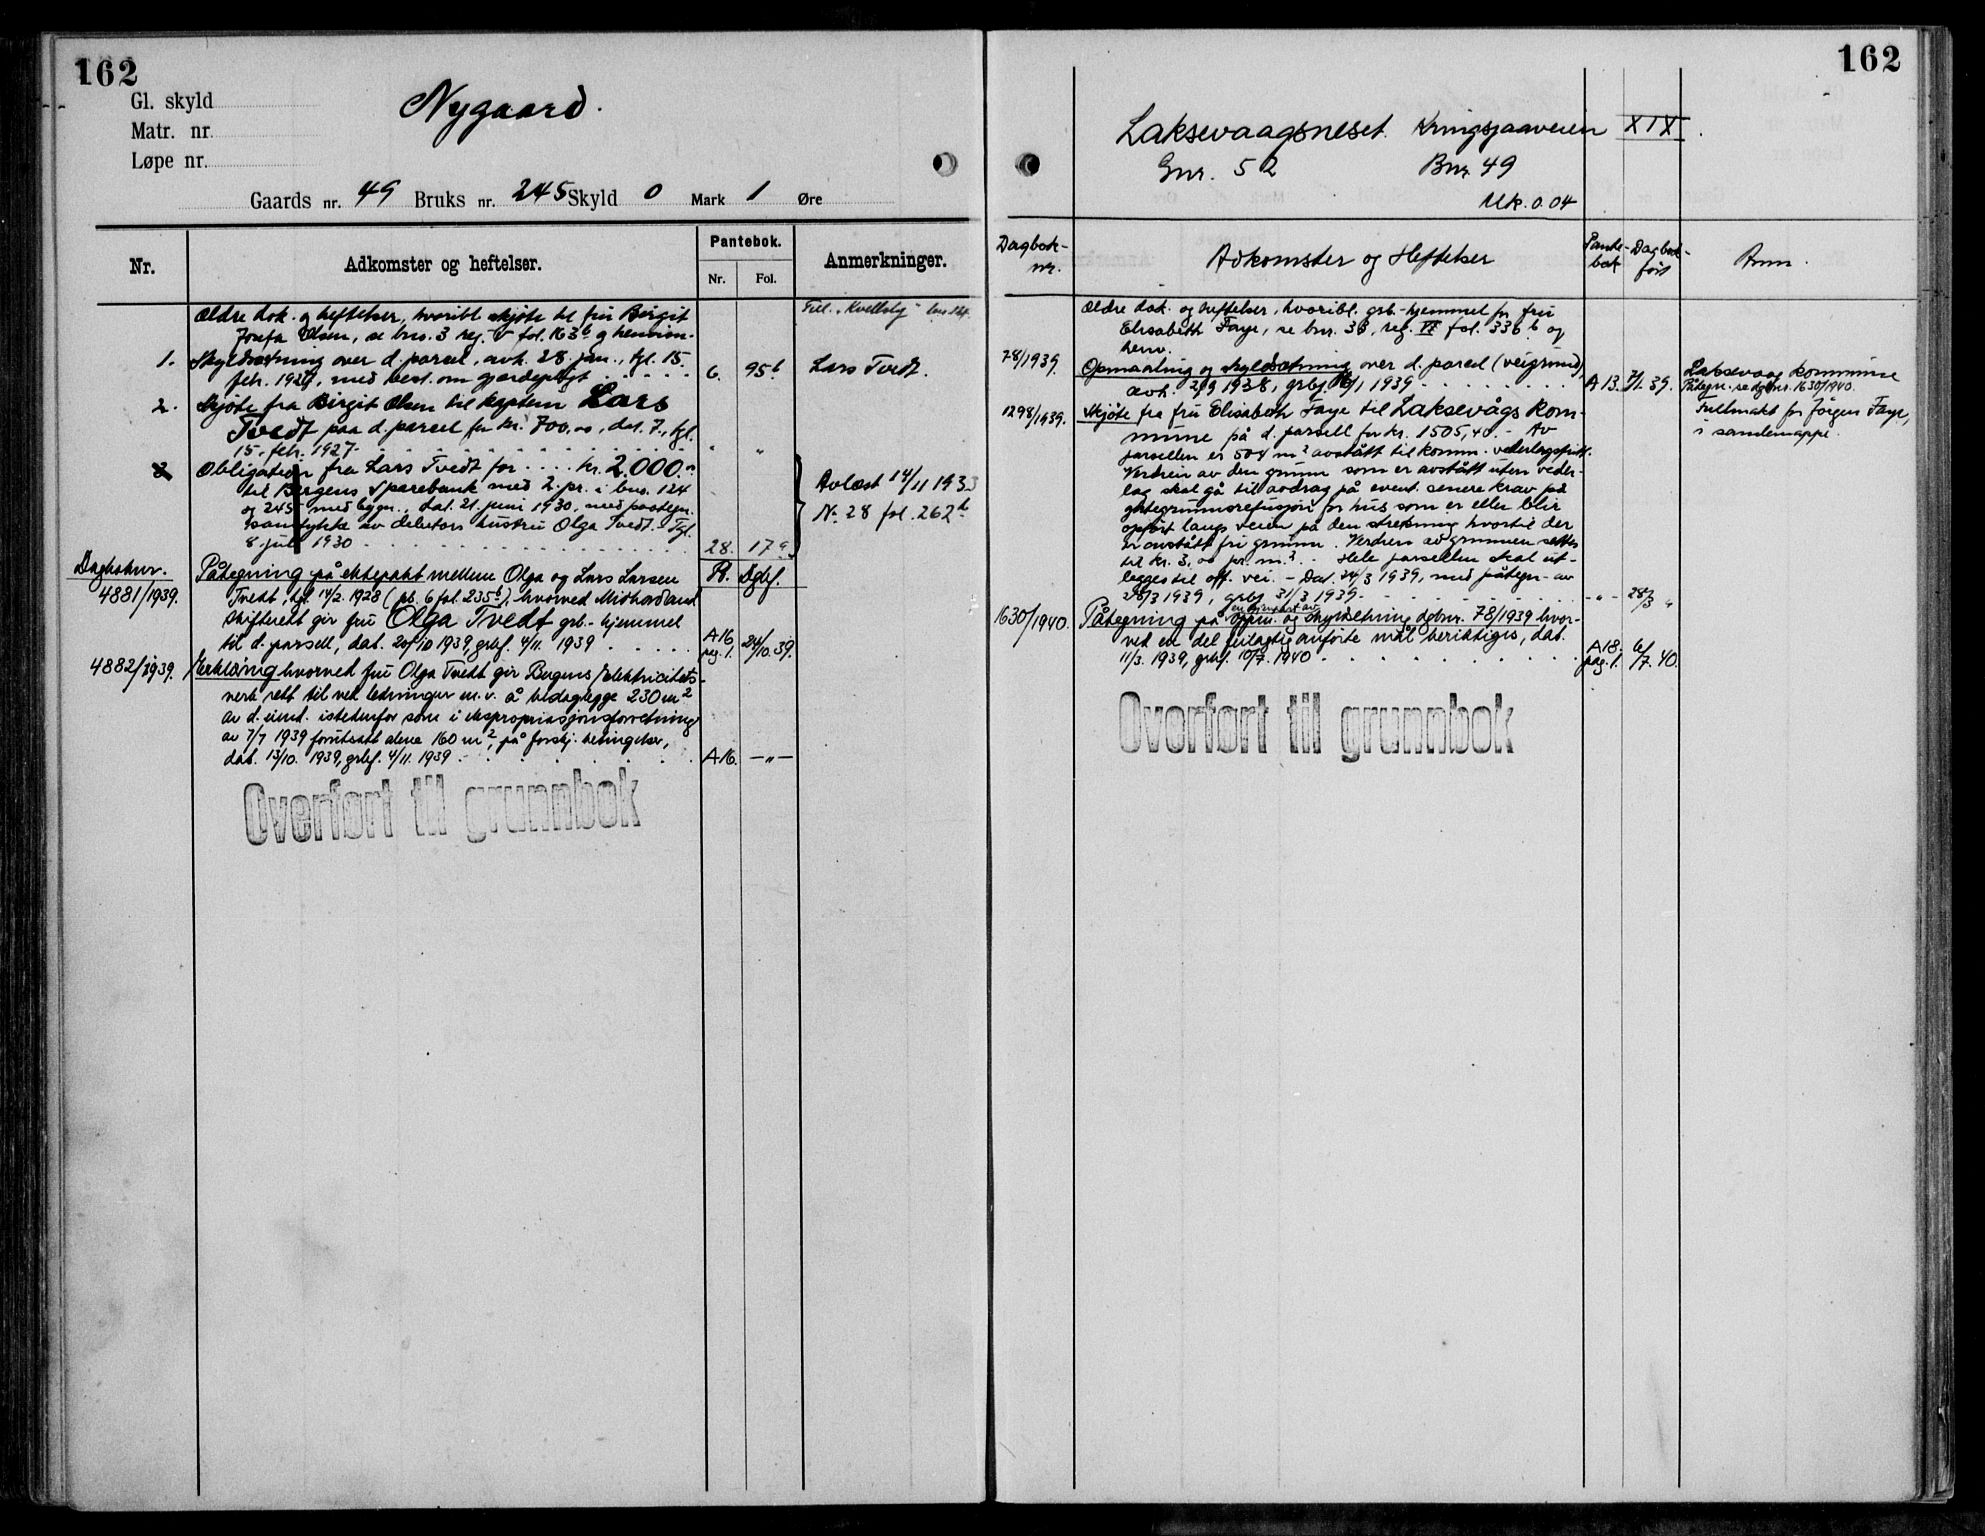 162
Gl. skyld
Matr. nr.
Løpe nr.
Nygaard.
Gaards nr. 49 Bruks nr. 245 Skyld 0 Mark 1 Øre
Nr.
Adkomster og heftelser.
Pantebok.
Nr. Fol.
Anmerkninger.
Ældre dok. og heftelser, hvoribl. skjöte til fru Birgit
Josefa Olsen, se bnr. 3 reg. V fol. 163 b og henvisn.
Till. "Kvellsly" bnr. 124.
1. Skyldsætning over d. parcel, avh. 28. jan., tgl. 15.
febr. 1927, med best. om gjerdepligt . . . . . 6. 95 b Lars Tvedt.
2. Skjöte fra Birgit Olsen til kaptein Lars
Tvedt paa d. parcel for kr. 700,00, dat. 7., tgl.
15. febr. 1927 . . . . . " "
3 Obligation fra Lars Tvedt for .... kr. 2.000.00
til Bergens Sparebank med 2. pr. i bnr. 124
og 245 med bygn., dat. 21. juni 1930, med paategn.
samtykke av debitors hustru Olga Tvedt. Tgl.
8. juli 1930 . . . . . 28. 17 a
Avlæst 14/11 1933
N. 28 fol. 262 b
Dagboknr.
4881/1939.
Påtegning på ektepakt mellem Olga og Lars Larsen Pl. Dgbf.
Tvedt, tgl. 14/2. 1928 (pb. 6 fol. 235 b), hvorved Midhordland
skifterett gir fru Olga Tvedt grb.-hjemmel
til d. parsell, dat. 20/10 1939, grbf. 4/11. 1939 . . . . . A16. pag. 1. 24/10. 39.
4882/1939. Erklæring hvorved fru Olga Tvedt gir Bergens Elektricitets-
verk rett til ved ledninger m.v. å beslaglegge 230 m²
av d. eiend. istedenfor som i ekspropriasjonsforretning
av 7/7 1939 forutsatt alene 160 m², på forskj. betingelser,
dat. 13/10. 1939, grbf. 4/11. 1939 . . . . . A16. —"—
Overført til grunnbok
162
Laksevaagsneset. Kringsjaaveien XIX.
Gnr. 52 Bnr. 49
Mk. 0.04
Dagbok-
nr.
Adkomster og Heftelser
Pante-
bok
Dagbok-
ført
Anm.
Ældre dok. og heftelser, hvoribl. grb.-hjemmel for fru
Elisabeth Faye, se bnr. 38, reg. VI fol. 336 b og
henv.
78/1939. Opmaaling og skyldsætning over d. parcel (veigrund),
avh. 2/9 1938, grbf. 1/1 1939 . . . . . A 13. 7/1. 39.
Laksevaag kommune
Påtegn. se dgbnr. 1630/1940.
Fullmakt for Jörgen Faye,
i samlemappe.
1298/1939. Skjöte fra fru Elisabeth Faye til Laksevågs kom-
mune på d. parsell for kr. 1505,40. - Av
parsellen er 504 m² avstått til komm. vederlagsfritt.
Verdien av den grunn som er avstått uten veder-
lag skal gå til avdrag på event. senere krav på
gategrunnsrefusjon for hus som er eller blir
oppført langs veien på den strekning hvortil der
er avstått fri grunn. Verdien av grunnen settes
til kr. 3,00 pr. m². - Hele parsellen skal ut-
legges til off. vei. - Dat. 24/3 1939, med påtegn. av
28/3 1939, grbf. 31/3 1939 . . . . . - " - 28/3 "
1630/1940. Påtegning på en gjenpart av oppm. og skyldsetning dgbnr. 78/1939 hvor-
ved en del feilagtig anførte mål beriktiges, dat.
11/3. 1939, grbf. 10/7. 1940 . . . . . A18. pag. 1. 6/7. 40.
Overført til grunnbok